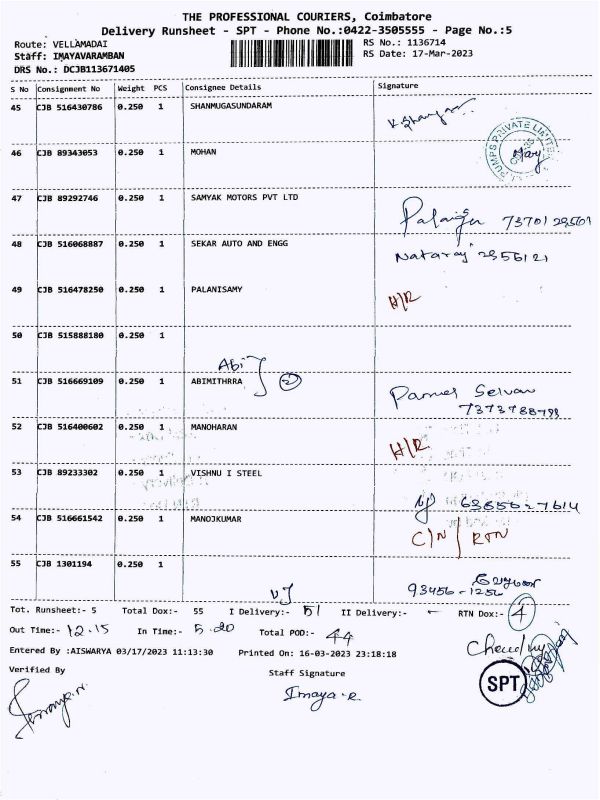 THE PROFESSIONAL COURIERS, Coimbatore
Delivery Runsheet - SPT - Phone No.:0422-3505555 - Page No.:5
Route: VELLAMADAI
RS No.: 1136714
Staff: IMAYAVARAMBAN
RS Date: 17-Mar-2023
DRS No.: DCJB113671405
S No Consignment No Weight PCS Consignee Details Signature
45 CJB 516430786 0.250 1 SHANMUGASUNDARAM
PUMPS PRIVATE LIMITED
46 CJB 89343053 0.250 1 MOHAN
47 CJB 89292746 0.250 1 SAMYAK MOTORS PVT LTD
48 CJB 516068887 0.250 1 SEKAR AUTO AND ENGG
Nataraj 2956121
49 CJB 516478250 0.250 1 PALANISAMY H/R
50 CJB 515888180 0.250 1
Abi
51 CJB 516669109 0.250 1 ABIMITHRRA 2
Selvan
52 CJB 516400602 0.250 1 MANOHARAN
H/R
53 CJB 89233302 0.250 1 VISHNU I STEEL
54 CJB 516661542 0.250 1 MANOJKUMAR
C/N / RTN
55 CJB 1301194 0.250 1
93456-1256
Tot. Runsheet:- 5 Total Dox:- 55 I Delivery:- 51 II Delivery:- - RTN Dox:- 4
Out Time:- 12.15 In Time:- 5.20 Total POD:- 44
Entered By :AISWARYA 03/17/2023 11:13:30 Printed On: 16-03-2023 23:18:18
Verified By Staff Signature
Imaya-R
SPT